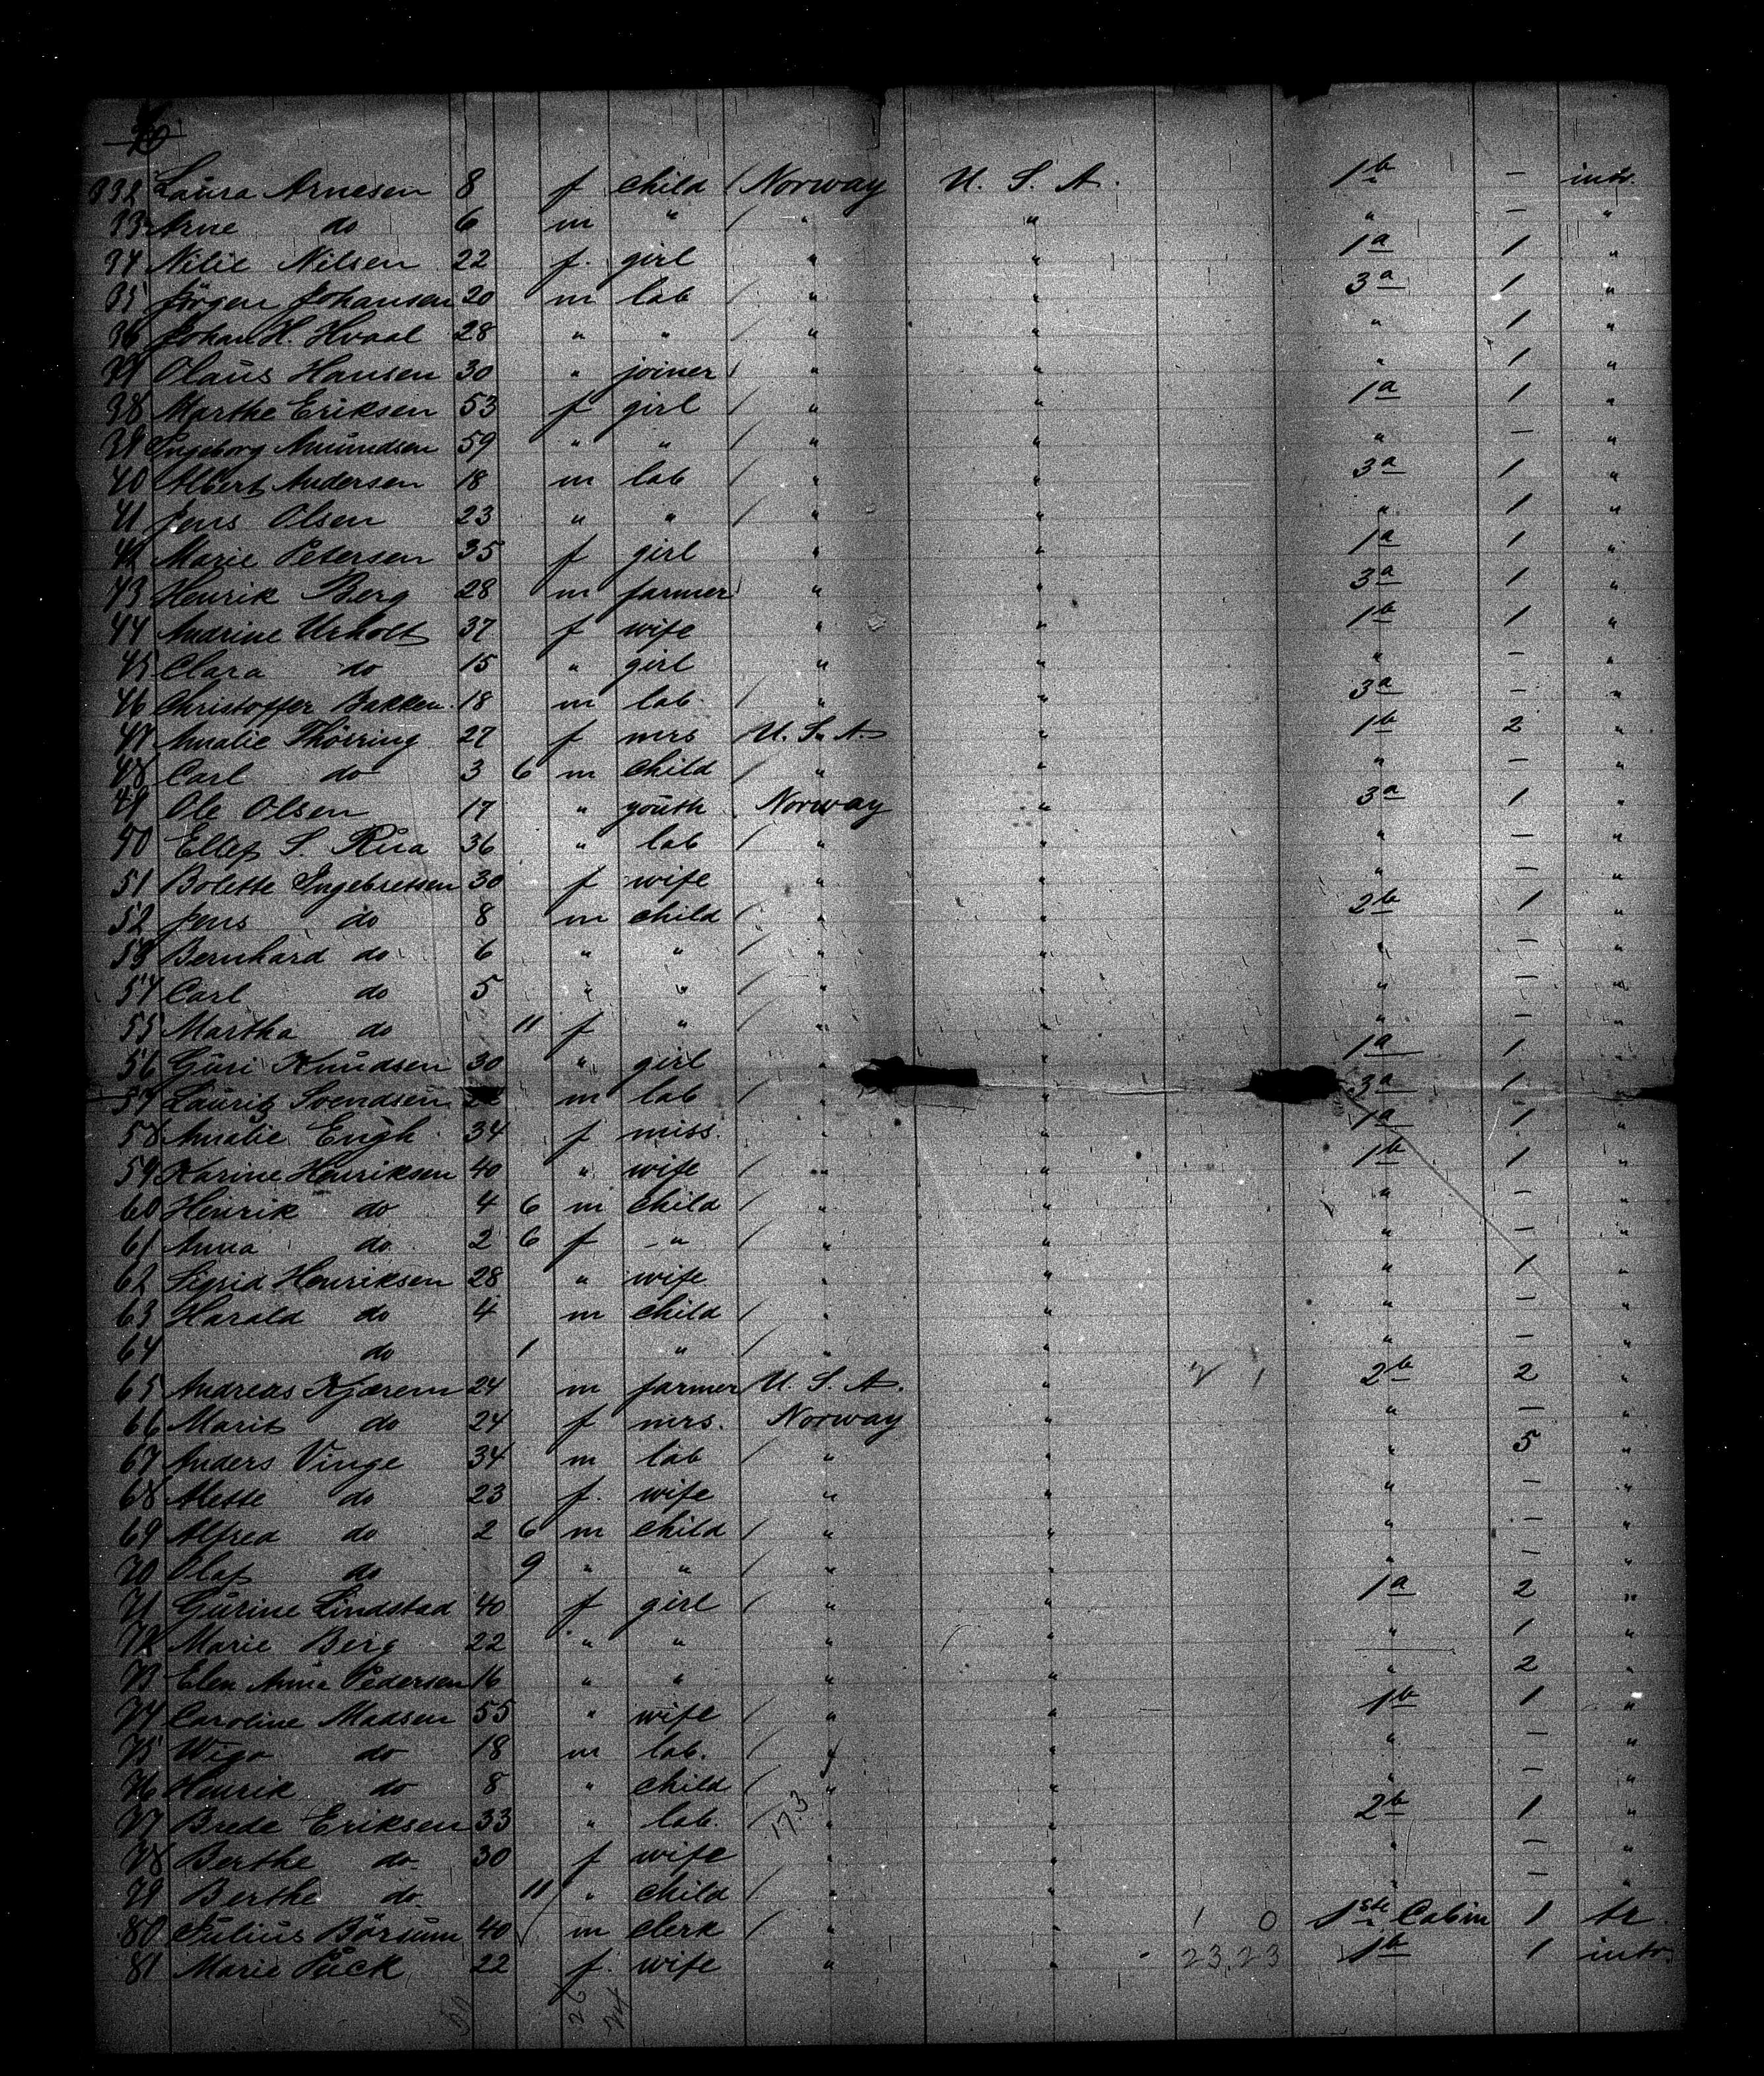 332 Laura Arnesen 8 f child Norway U. S. A. 1b — intr.
33 Arne do 6 m " " " " — "
34 Nilie Nilsen 22 f. girl " " 1a 1 "
35 Jörgen Johansen 20 m lab " " 3a 1 "
36 Johan H. Hvaal 28 " " " " " 1 "
37 Olaus Hansen 30 " joiner " " " 1 "
38 Marthe Eriksen 53 f girl " " 1a 1 "
39 Ingeborg Amundsen 59 " " " " " — "
40 Albert Andersen 18 m lab " " 3a 1 "
41 Jens Olsen 23 " " " " " 1 "
42 Marie Petersen 35 f girl " " 1a 1 "
43 Henrik Berg 28 m farmer " " 3a 1 "
44 Andrine Urholt 37 f wife " " 1b 1 "
45 Clara do 15 " girl " " " — "
46 Christoffer Bakken 18 m lab. " " 3a — "
47 Amalie Thörring 27 f mrs U. S. A. " 1b 2 "
48 Carl do 3 6 m child " " " — "
49 Ole Olsen 17 " youth Norway " 3a 1 "
50 Ellef S. Rua 36 " lab " " " — "
51 Bolette Engebretsen 30 f wife " " " — "
52 Jens do 8 m child " " 2b 1 "
53 Bernhard do 6 " " " " " — "
54 Carl do 5 " " " " " — "
55 Martha do 11 f " " " " — "
56 Guri Knudsen 30 " girl " " 1a 1 "
57 Lauritz Svendsen m lab " " 3a 1 "
58 Amalie Engh 34 f miss. " " 1a 1 "
59 Karine Henriksen 40 " wife " " 1b 1 "
60 Henrik do 4 6 m child " " " — "
61 Anna do 2 6 f " " " " — "
62 Sigrid Henriksen 28 " wife " " " 1 "
63 Harald do 4 m child " " " — "
64 do 1 " " " " — "
65 Andreas Kjærem 24 m farmer U. S. A. " 2b 2 "
66 Marit do 24 f mrs. Norway " " — "
67 Anders Vinge 34 m lab " " " 5 "
68 Mette do 23 f. wife " " " — "
69 Alfred do 2 6 m child " " " — "
70 Olaf do 9 " " " " " — "
71 Gurine Lindstad 40 f girl " " 1a 2 "
72 Marie Berg 22 " " " " " 1 "
73 Elen Anna Pedersen 16 " " " " " 2 "
74 Caroline Madsen 55 " wife " " 1b 1 "
75 Wigo do 18 m lab. " " " — "
76 Henrik do 8 " child " " " — "
77 Brede Eriksen 33 " lab. 17.3 " " 2b 1 "
78 Berthe do 30 f wife " " " — "
79 Berthe do 11 " child " " " — "
80 Julius Börsum 40 m clerk " " 1 0 1ste Cabin 1 tr.
81 Marie Puck 22 f. wife " " 23 23 1b 1 intr.
50 26 24